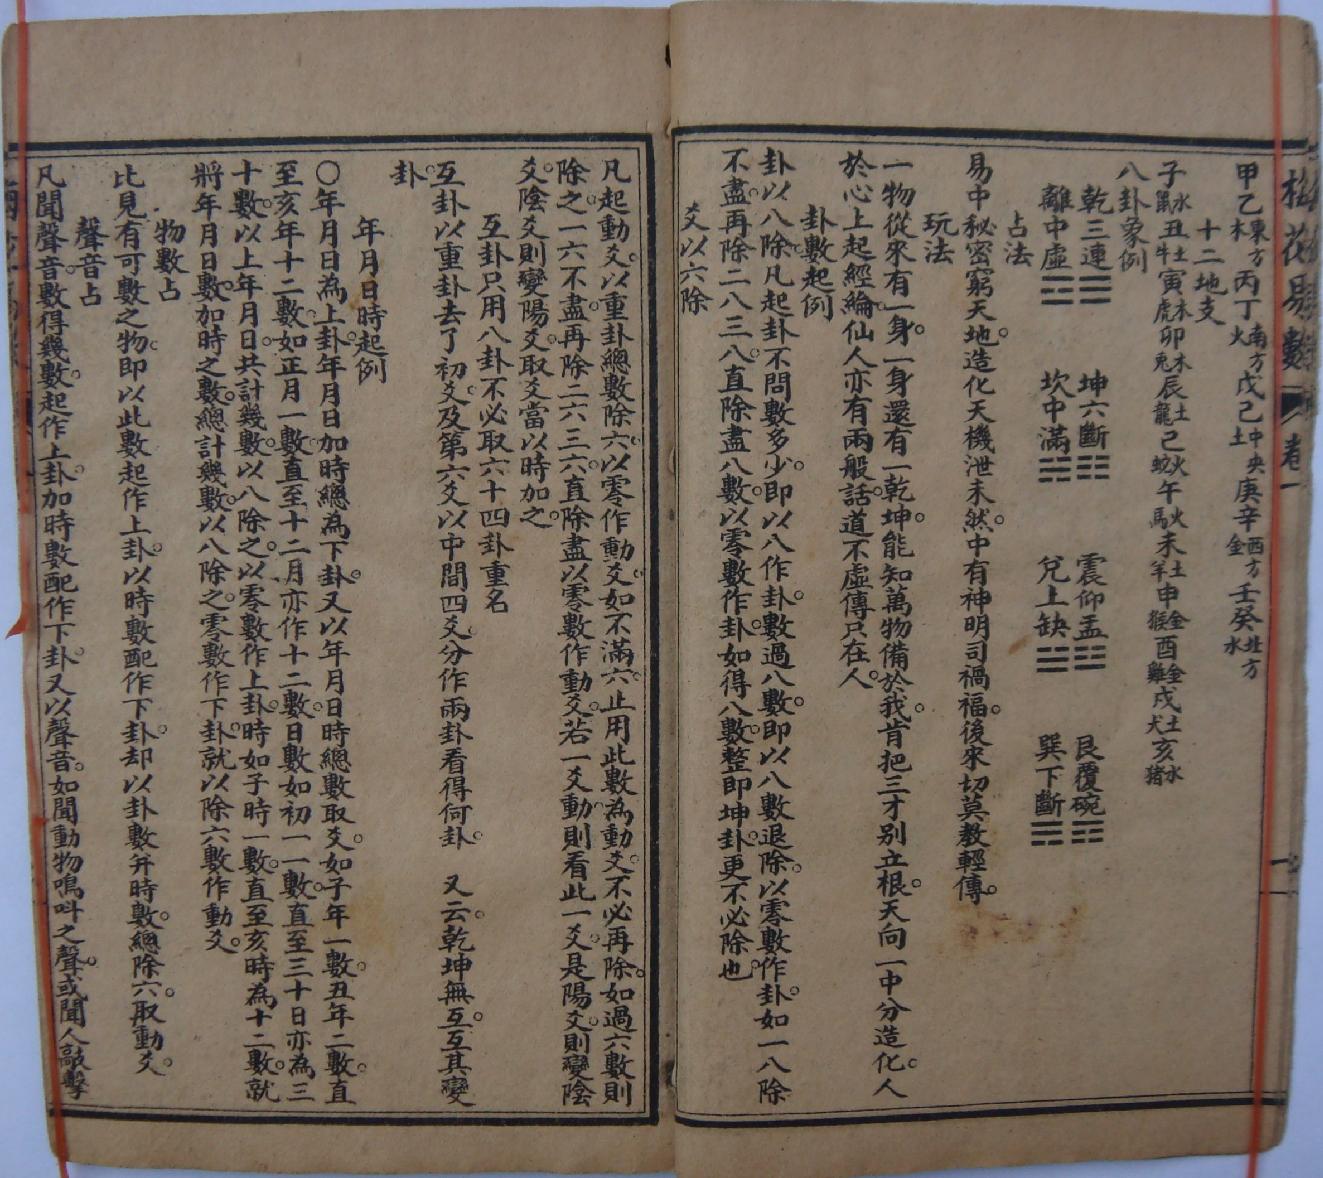 梅花易數 卷一
甲乙東方木 丙丁南方火 戊己中央土 庚辛西方金 壬癸北方水
十二地支
子水鼠 丑土牛 寅木虎 卯木兔 辰土龍 巳火蛇 午火馬 未土羊 申金猴 酉金雞 戌土犬 亥水猪
八卦象例
乾三連☰ 坤六斷☷ 震仰盂☳ 艮覆碗☶
離中虛☲ 坎中滿☵ 兌上缺☱ 巽下斷☴
占法
易中秘密窮天地。造化天機泄未然。中有神明司禍福。後來切莫教輕傳。
玩法
一物從來有一身。一身還有一乾坤。能知萬物備於我。肯把三才別立根。天向一中分造化。人
於心上起經綸。仙人亦有兩般話。道不虛傳只在人。
卦數起例
卦以八除。凡起卦不問數多少。即以八作卦。數過八數。即以八數退除。以零數作卦。如一八除
不盡。再除二八三八。直除盡八數。以零數作卦。如得八數。整即坤卦。更不必除也。
爻以六除
凡起動爻。以重卦總數除六。以零作動爻。如不滿六。止用此數為動爻。不必再除。如過六數則
除之。一六不盡。再除二六三六。直除盡以零數作動爻。若一爻動則看此一爻。是陽爻。則變陰
爻。陰爻則變陽爻。取爻當以時加之。
互卦只用八卦不必取六十四卦重名
互卦以重卦去了初爻。及第六爻。以中間四爻。分作兩卦看得何卦。 又云。乾坤無互。互其變
卦。
年月日時起例
〇年月日為上卦。年月日加時總為下卦。又以年月日時總數取爻。如子年一數。丑年二數。直
至亥年十二數。如正月一數。直至十二月亦作十二數。日數如初一一數。直至三十日亦為三
十數。以上年月日。共計幾數。以八除之。以零數作上卦。時如子時一數。直至亥時為十二數。就
將年月日數。加時之數。總計幾數。以八除之。零數作下卦。就以除六數作動爻。
物數占
比見有可數之物。即以此數起作上卦。以時數配作下卦。却以卦數并時數。總除六。取動爻。
聲音占
凡聞聲音。數得幾數。起作上卦。加時數配作下卦。又以聲音。如聞動物鳴叫之聲。或聞人敲擊